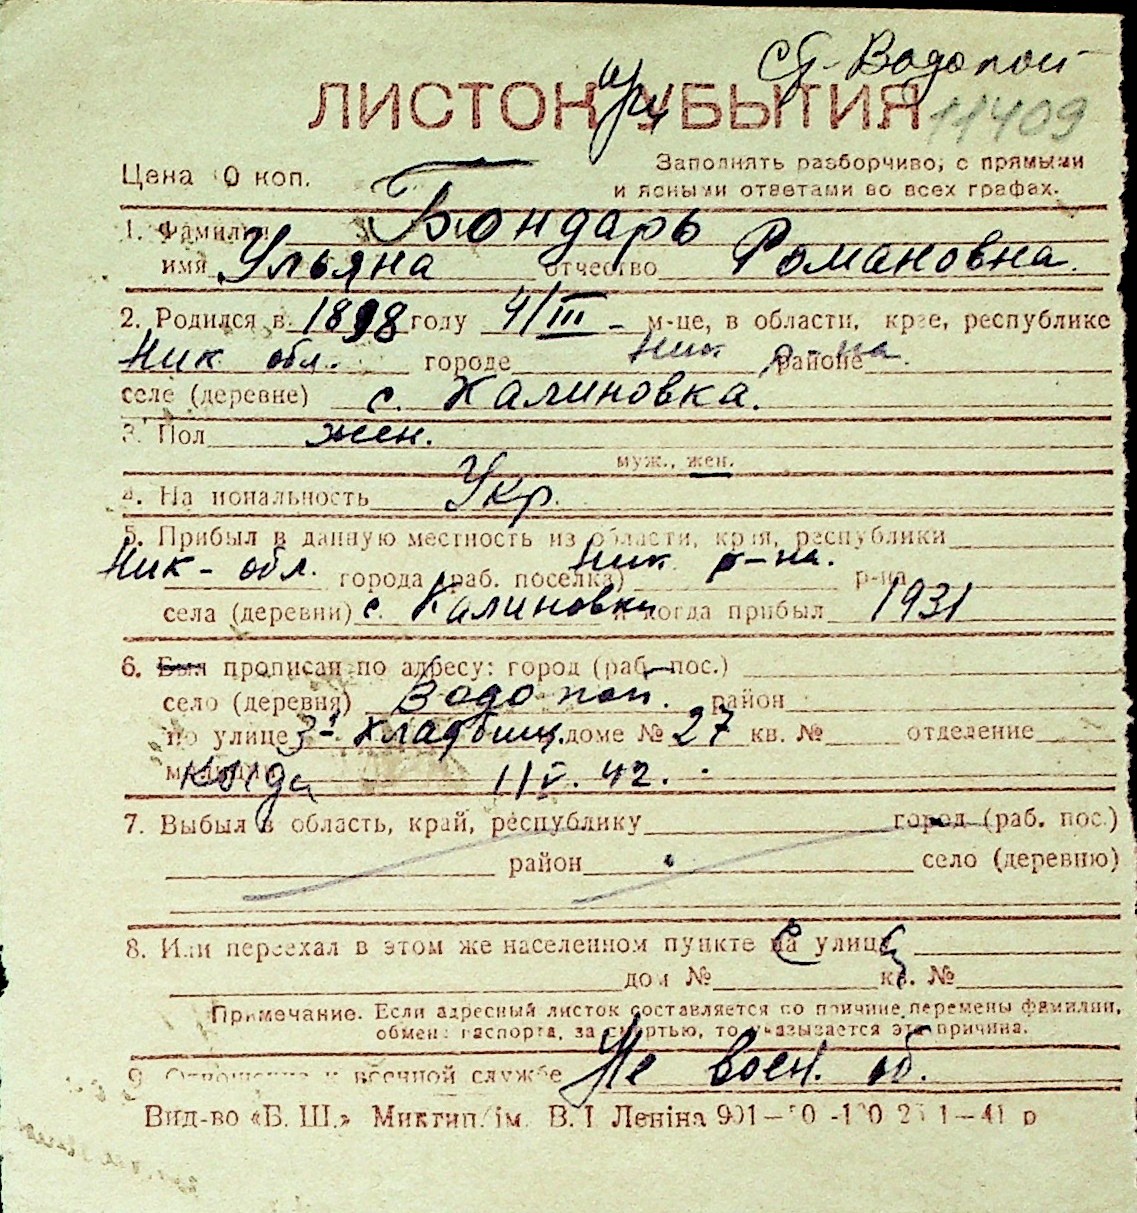 ст. Водопой
ЛИСТОК УБЫТИЯ
11409
Цена 10 коп.
Заполнять разборчиво, с прямыми
и ясными ответами во всех графах.
1. Фамилия Бондарь
имя Ульяна отчество Романовна.
2. Родился в 1898 году 4/III - м-це, в области, крае, республике
Ник обл. городе Ник р-на районе
селе (деревне) с. Калиновка.
3. Пол жен.
муж., жен.
4. Национальность Укр.
5. Прибыл в данную местность из области, края, республики
Ник - обл. города (раб. поселка) Ник р-на. р-на
села (деревни) с. Калиновки и когда прибыл 1931
6. Был прописан по адресу: город (раб. пос.)
село (деревня) Водопой. район
по улице 3-я Кладбищ. доме № 27 кв. № отделение
милиции когда 1 IV. 42.
7. Выбыл в область, край, республику город (раб. пос.)
район село (деревню)
8. Или переехал в этом же населенном пункте на улицу
дом № кв. №
Примечание. Если адресный листок составляется по причине перемены фамилии,
обмена паспорта, за смертью, то указывается эта причина.
9. Отношение к военной службе Не воен. об.
Вид-во «Б. Ш.» Миктип. ім. В. І Леніна 901
41 р